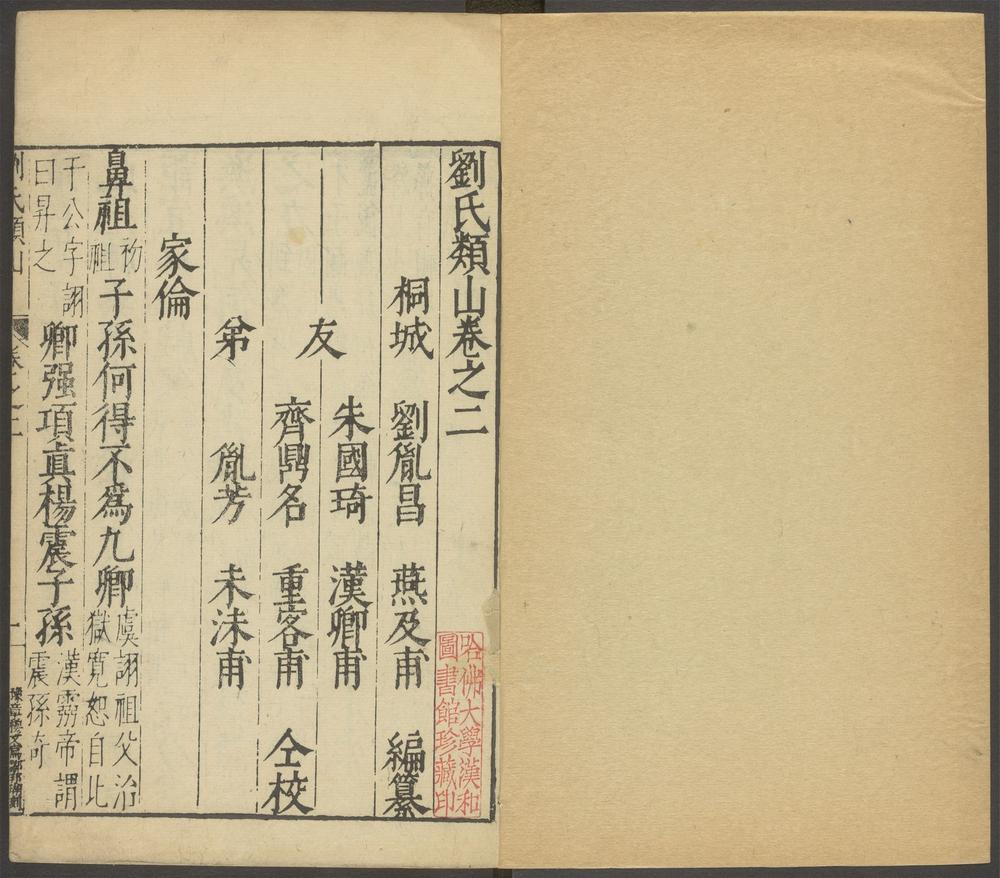 劉氏類山卷之二
桐城 劉胤昌 燕及甫 編纂
友 朱國琦 漢卿甫
齊鼎名 重客甫 仝校
弟 胤芳 未沬甫
家倫
鼻祖 初祖 子孫何得不爲九卿 虞詡祖父治獄寬恕自比
于公字詡曰昇之 卿强項真楊震子孫 漢靈帝謂震孫奇
劉氏類山 卷之二 一
哈佛大學漢和
圖書館珍藏印